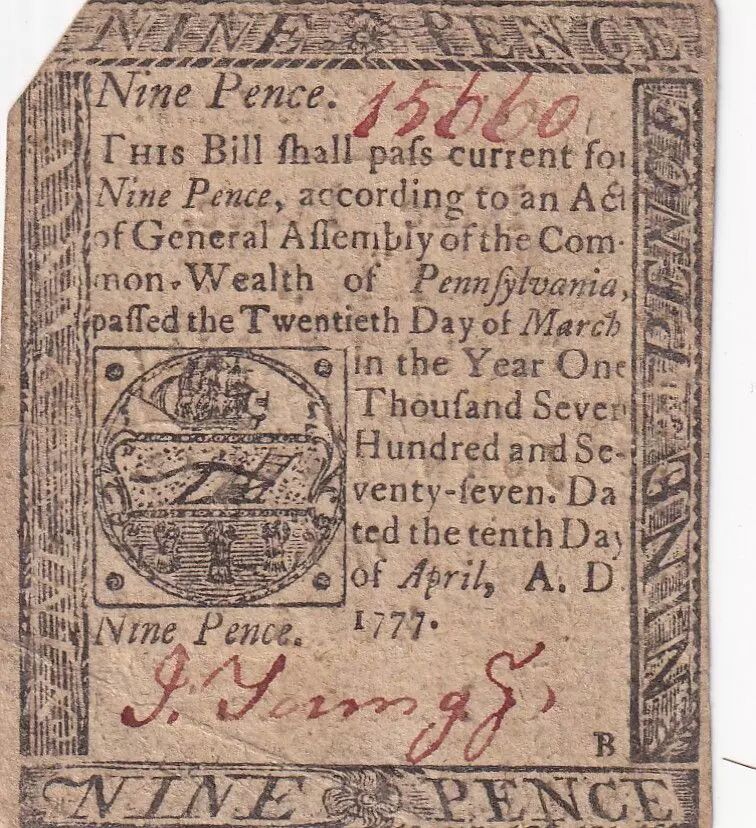 NINE PENCE
Nine Pence. 15660
THIS Bill ſhall paſs current for
Nine Pence, according to an Act
of General Aſſembly of the Com-
mon-Wealth of Pennſylvania,
paſſed the Twentieth Day of March
in the Year One
Thouſand Seven
Hundred and Se-
venty-ſeven. Da
ted the tenth Day
of April, A. D.
1777.
Nine Pence.
J. Young Jr
B
NINE PENCE
NINE PENCE